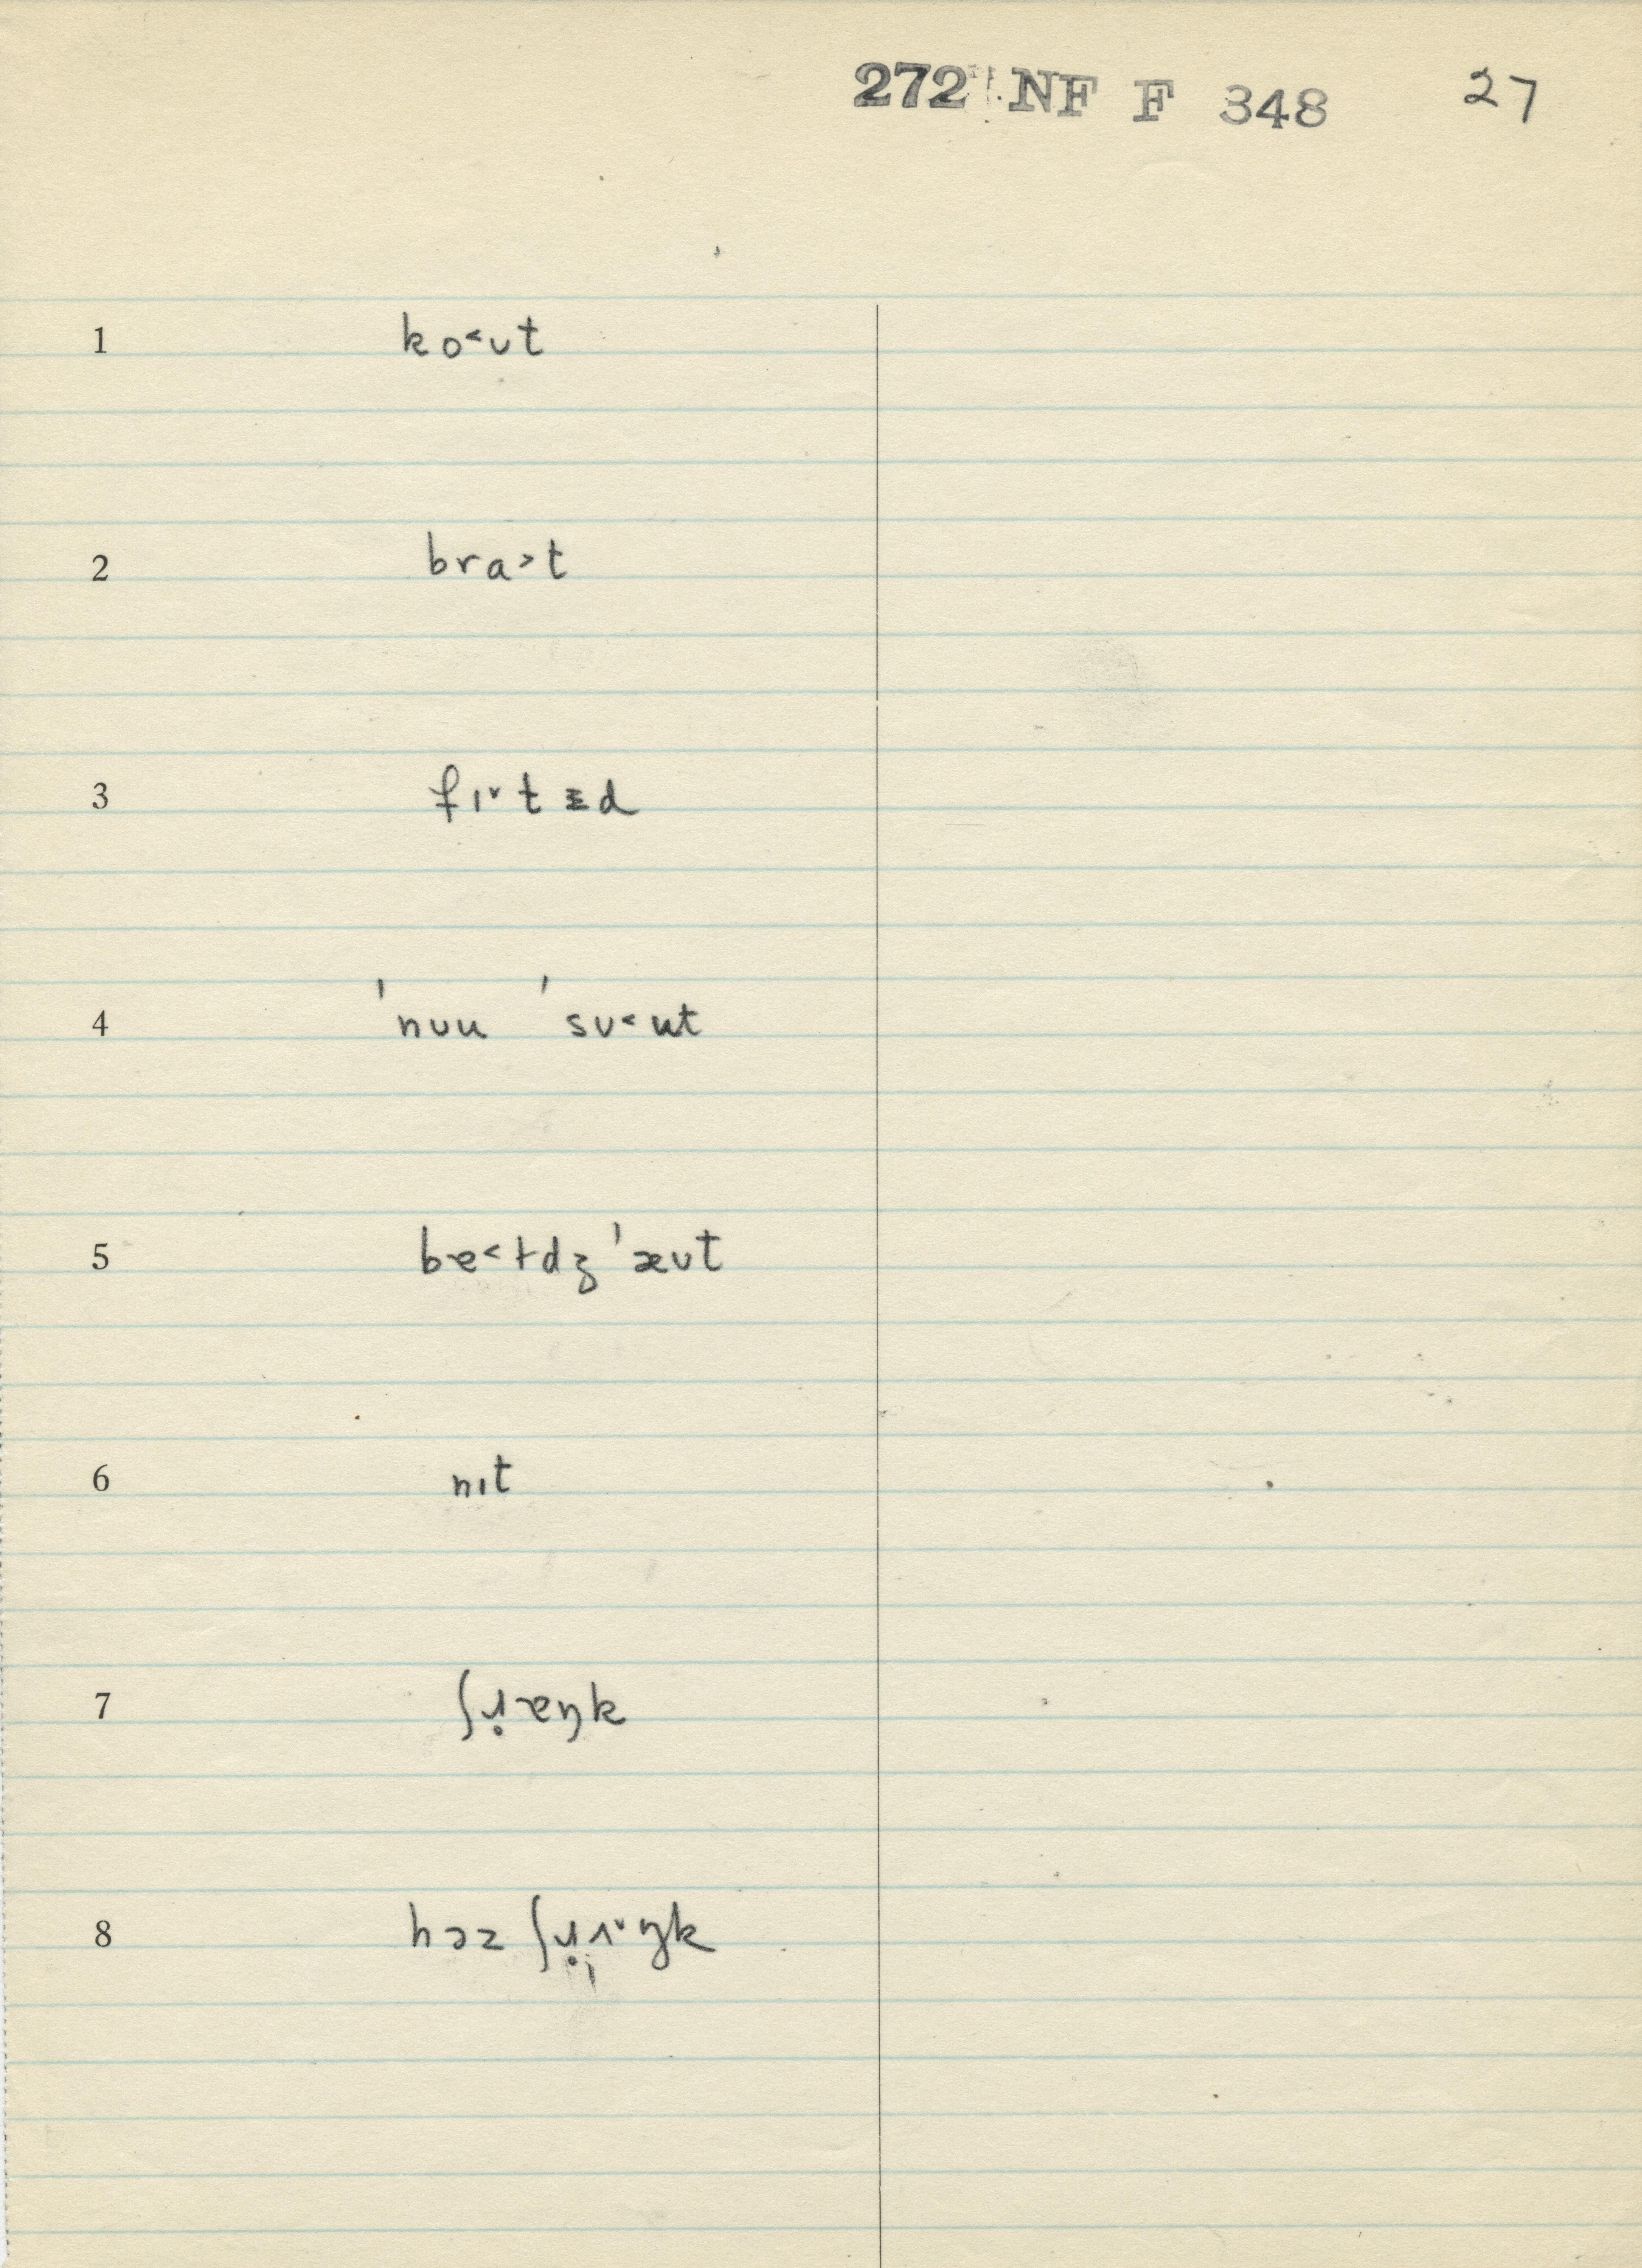 272 NF F 348 27
1 ko˂ʊt
2 bra˃t
3 fɪ˅tɨd
4 ˈnʊu ˈsʊ˂ut
5 be˂ɫdzˈæʊt
6 nɪt
7 ʃɹ̣æŋk
8 həz ʃɹ̣ʌ˅ŋk